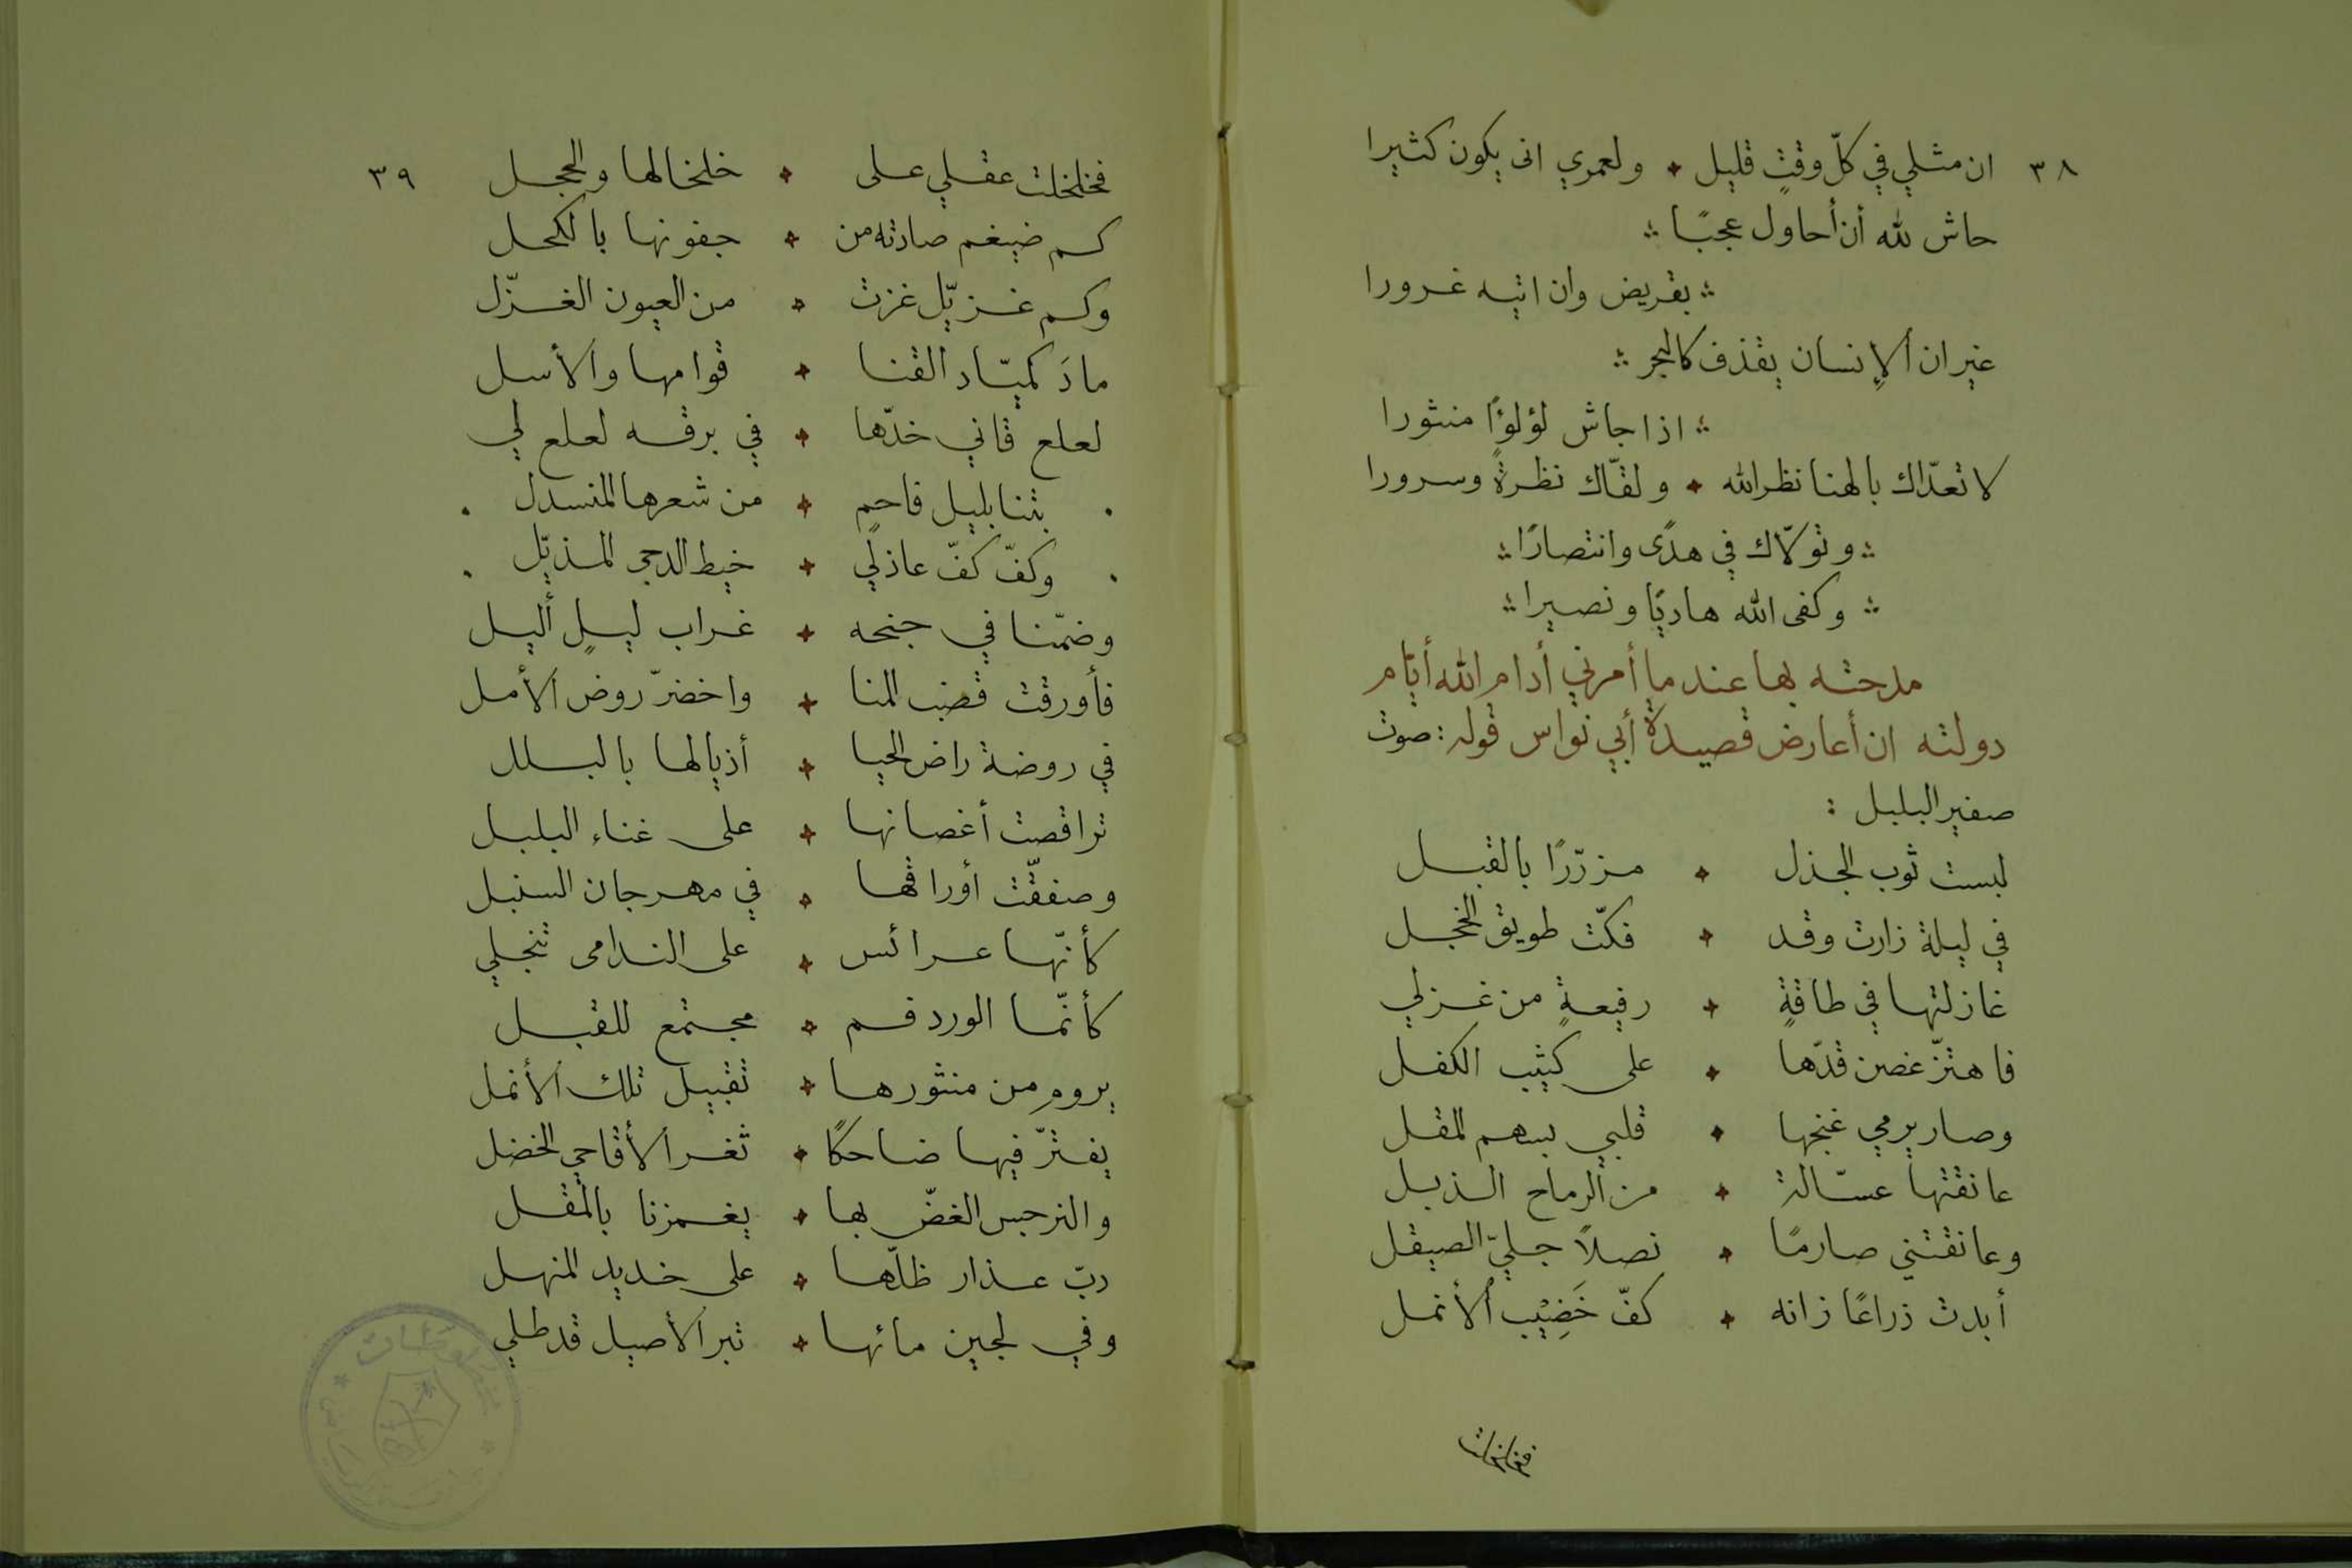 ٣٨ ان مثلي في كلّ وقتٍ قليل ٭ ولعمري انى يكون كثيرا
حاش لله أن أحاول عجبًا ؞
؞ بقريض وان اتيه غرورا
غير ان الإنسان يقذف كالبحر ؞
؞ اذا جاش لؤلؤًا منثورا
لا تعدّاك بالهنا نظر الله ٭ ولقّاك نظرةً وسرورا
؞ وتولّاك في هدًى وانتصارًا ؞
؞ وكفى الله هاديًا ونصيرا ؞
مدحته بها عندما أمرني أدام الله أيّام
دولته ان أعارض قصيدة أبي نواس قوله : صوت
صفير البلبل :
لبست ثوب الجذل ٭ مزرّرًا بالقبل
في ليلة زارت وقد ٭ فكّت طويق الخجل
غازلتها في طاقةٍ ٭ رفيعةٍ من غزلي
فاهتزّ غصن قدّها ٭ على كثيب الكفل
وصار يرمي غنجها ٭ قلبي بسهم المقل
عانقتها عسّالة ٭ من الرماح الذبل
وعانقتني صارمًا ٭ نصلاً جليّ الصيقل
أبدت ذراعًا زانه ٭ كفّ خَضِيْب الأنمل
فخلخلت
٣٩
فخلخلت عقلي على ٭ خلخالها والحجل
كم ضيغم صادته من ٭ جفونها بالكحل
وكم غزيّل غزت ٭ من العيون الغزّل
مادَ كميّاد القنا ٭ قوامها والأسل
لعلع قاني خدّها ٭ في برقه لعلع لي
. بتنا بليل فاحمٍ ٭ من شعرها المنسدل .
. وكفّ كفّ عاذلي ٭ خيط الدجى المذيّل .
وضمّنا في جنحه ٭ غراب ليلٍ أليل
فأورقت قضب المنا ٭ واخضرّ روض الأمل
في روضة راض الحيا ٭ أذيالها بالبلل
تراقصت أغصانها ٭ على غناء البلبل
وصفقّت أوراقها ٭ في مهرجان السنبل
كأنّها عرائس ٭ على الندامى تنجلي
كأنّما الورد فم ٭ مجتمع للقبل
يروم من منثورها ٭ تقبيل تلك الأنمل
يفترّ فيها ضاحكًا ٭ ثغر الأقاحي الخضل
والنرجس الغضّ بها ٭ يغمزنا بالمقل
دبّ عذار ظلّها ٭ على خديد المنهل
وفي لجين مائها ٭ تبر الأصيل قد طلي